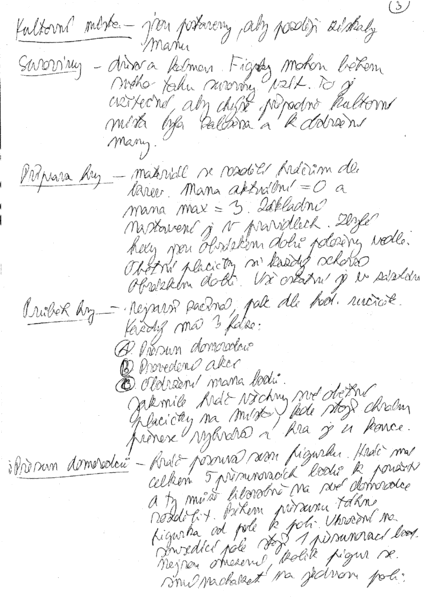 3
Kultovní místa – jsou postaveny, aby později získaly
manu
Suroviny – dřevo a kámen. Figurky mohou během
svého tahu suroviny vzít. To je
užitečné, aby chýše, případně kultovní
místa byla
many.
Příprava hry – materiál se rozdělí hráčům dle
barev. Mana aktuální = 0 a
mana max = 3. Základní
nastavení je v pravidlech.
hory jsou obrázkem dolů položeny vedle.
Obětní plackičky si každý schová
obrázkem dolů. Vše ostatní je v
Průběh hry – nejprve začíná, pak dle hod. ručiček.
Každý má 3 fáze:
A Přesun domorodců
B Provedení akcí
C Obdržení mana bodů.
Jakmile hráč všechny své obětní
plackičky na místo, kde stojí chrám
přinese vyhrává a hra je u konce.
Přesun domorodců – Hráč posouvá svou figurku. Hráč má
celkem 5 přesunovacích bodů k použití
a ty může libovolně na své domorodce
rozdělit. Během přesunu táhne
figurka od pole k poli. Vkročení na
sousedící pole stojí 1 přesunovací bod.
Nejsou omezení, kolik figur se
smí nacházet na jednom poli.